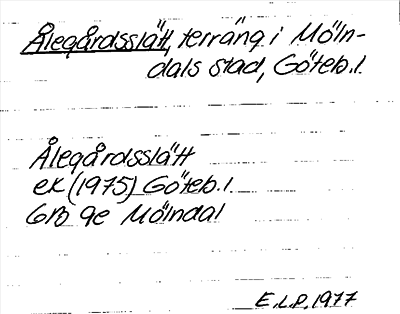 Ålegårdsslätt, terräng i Möln-
dals stad, Göteb.l.
Ålegårdsslätt
ek (1975) Göteb.l.
6B 9e Mölndal
E.L.P. 1977